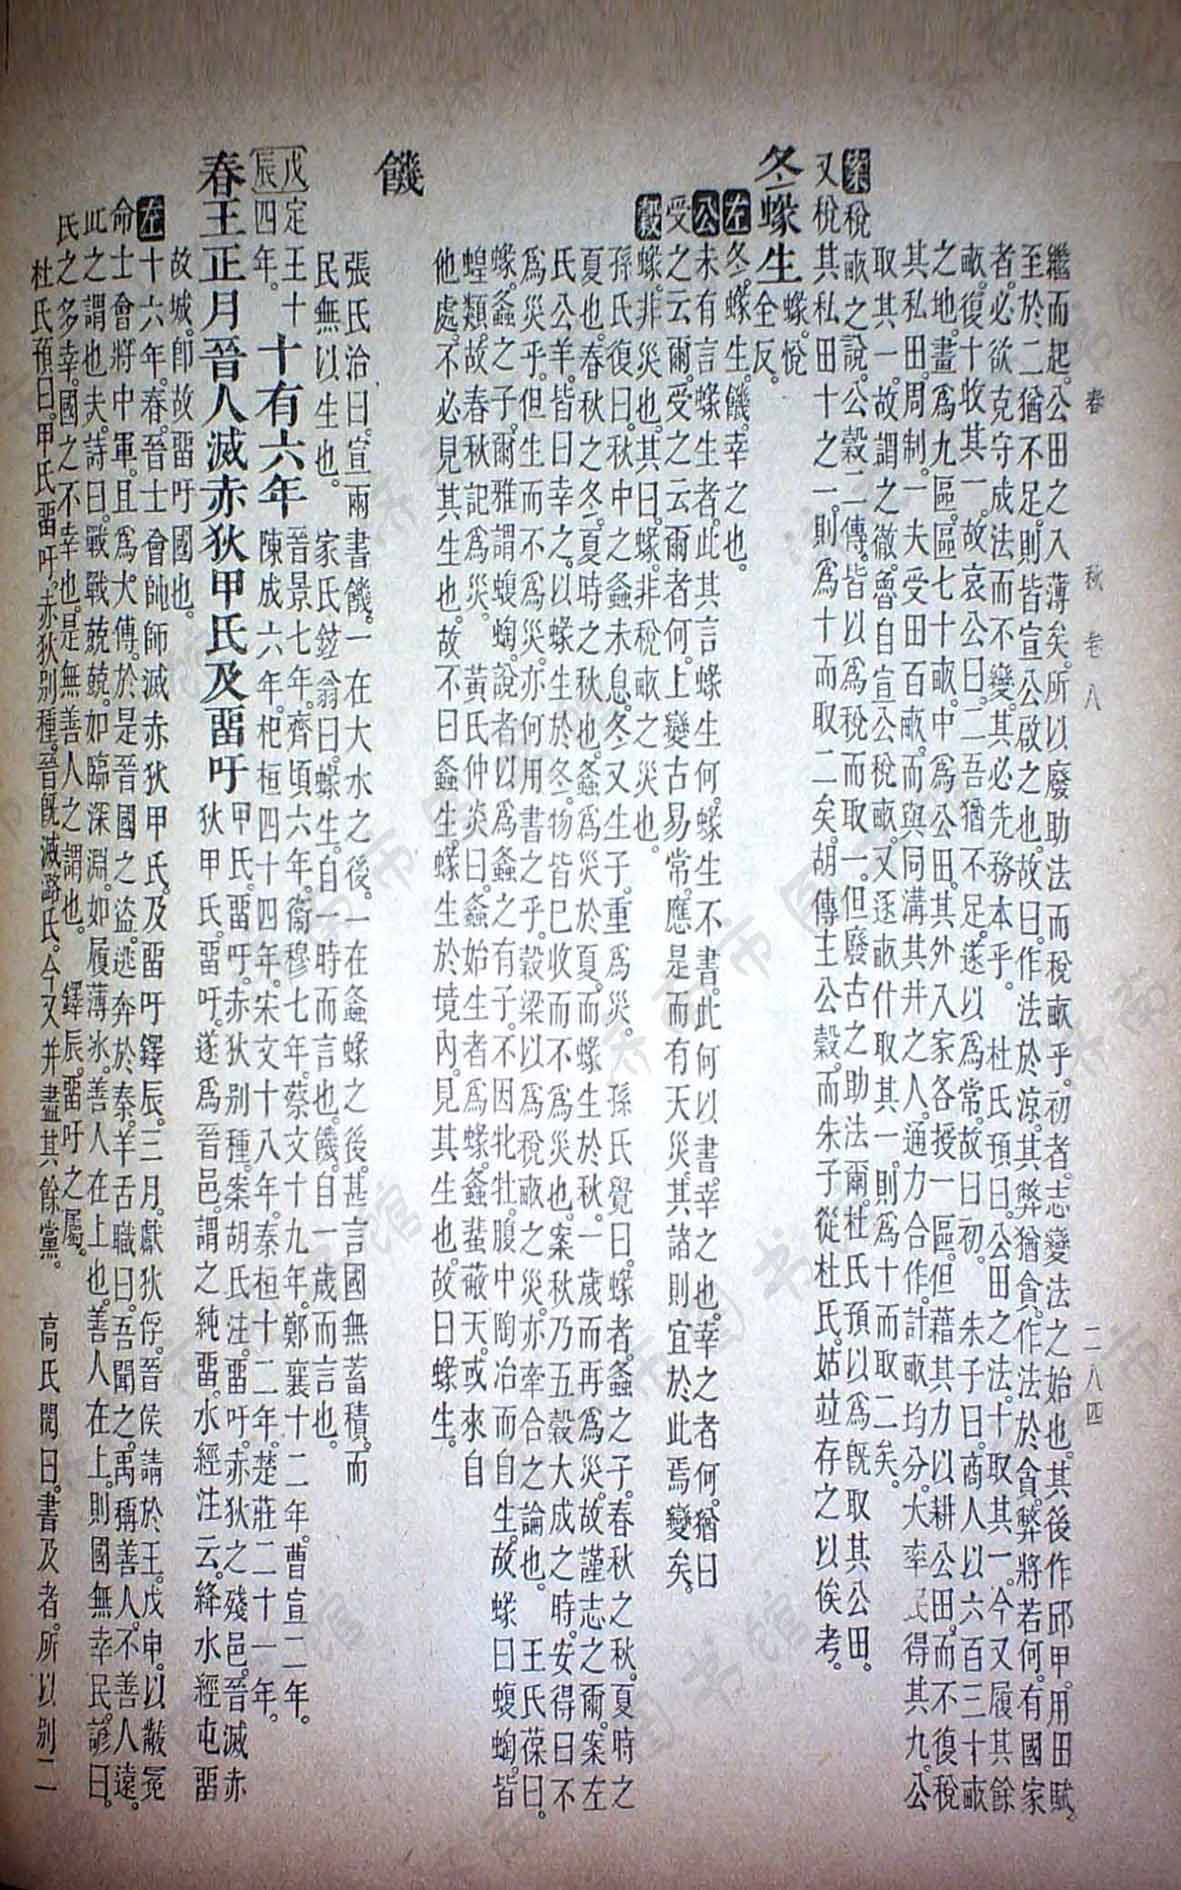 春　秋　卷八　二八四
繼而起。公田之入薄矣。所以廢助法而稅畝乎。初者。志變法之始也。其後作邱甲。用田賦。
至於二猶不足。則皆宣公啟之也。故曰。作法於涼。其弊猶貪。作法於貪。弊將若何。有國家
者。必欲克守成法而不變。其必先務本乎。　杜氏預曰。公田之法。十取其一。今又履其餘
畝。復十收其一。故哀公曰。二吾猶不足。遂以為常。故曰初。　朱子曰。商人以六百三十畝
之地。畫為九區。區七十畝。中為公田。其外八家各授一區。但藉其力以耕公田。而不復稅
其私田。周制。一夫受田百畝。而與同溝共井之人。通力合作。計畝均分。大率民得其九。公
取其一。故謂之徹。魯自宣公稅畝。又逐畝什取其一。則為十而取二矣。
案稅畝之說。公穀二傳。皆以為稅而取一。但廢古之助法爾。杜氏預以為既取其公田。
又稅其私田十之一。則為十而取二矣。胡傳主公穀。而朱子從杜氏。姑竝存之以俟考。
冬蝝生蝝。悅全反。
左冬。蝝生。饑。幸之也。
公未有言蝝生者。此其言蝝生何。蝝生不書。此何以書。幸之也。幸之者何。猶曰
受之云爾。受之云爾者何。上變古易常。應是而有天災。其諸則宜於此焉變矣。
穀蝝。非災也。其曰蝝。非稅畝之災也。
孫氏復曰。秋中之螽未息。冬又生子。重為災。　孫氏覺曰。蝝者。螽之子。春秋之秋。夏時之
夏也。春秋之冬。夏時之秋也。螽為災於夏。而蝝生於秋。一歲而再為災。故謹志之爾。案左
氏公羊。皆曰幸之。以蝝生於冬。物皆已收而不為災也。案秋乃五穀大成之時。安得曰不
為災乎。但生而不為災。亦何用書之乎。穀梁以為稅畝之災。亦牽合之論也。　王氏葆曰。
蝝。螽之子。爾雅謂蝮蜪。說者以為螽之有子。不因牝牡。腹中陶冶而自生。故蝝曰蝮蜪。皆
蝗類。故春秋記為災。　黃氏仲炎曰。螽始生者為蝝。螽蜚蔽天。或來自
他處。不必見其生也。故不曰螽生。蝝生於境內。見其生也。故曰蝝生。
饑
張氏洽曰。宣兩書饑。一在大水之後。一在螽蝝之後。甚言國無蓄積。而
民無以生也。　家氏鉉翁曰。蝝生。自一時而言也。饑。自一歲而言也。
戊辰定王十四年。十有六年晉景七年。齊頃六年。衛穆七年。蔡文十九年。鄭襄十二年。曹宣二年。陳成六年。杞桓四十四年。宋文十八年。秦桓十二年。楚莊二十一年。
春王正月晉人滅赤狄甲氏及畱吁甲氏。畱吁。赤狄別種。案胡氏注。畱吁。赤狄之殘邑。晉滅赤狄甲氏。畱吁。遂為晉邑。謂之純畱。水經注云。絳水經屯畱
故城。卽故畱吁國也。
左十六年。春。晉士會帥師滅赤狄甲氏。及畱吁鐸辰。三月。獻狄俘。晉侯請於王。戊申。以黻冕
命士會將中軍。且為大傅。於是晉國之盜。逃奔於秦。羊舌職曰。吾聞之。禹稱善人。不善人遠。
此之謂也夫。詩曰。戰戰兢兢。如臨深淵。如履薄冰。善人在上也。善人在上。則國無幸民。諺曰。
民之多幸。國之不幸也。是無善人之謂也。　鐸辰。畱吁之屬。
杜氏預曰。甲氏畱吁。赤狄別種。晉既滅潞氏。今又幷盡其餘黨。　高氏閌曰。書及者。所以別二